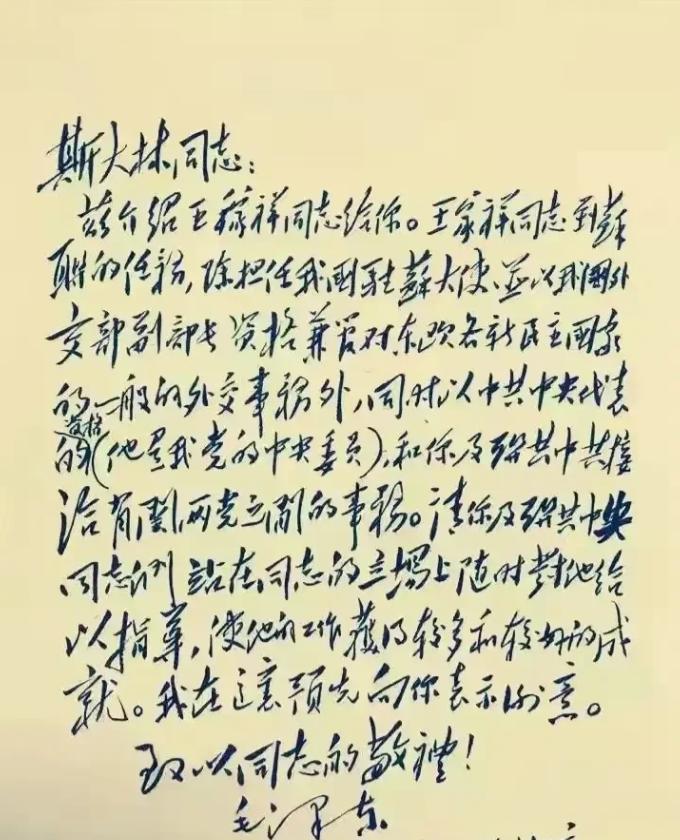 斯大林同志：
兹介绍王稼祥同志给你。王家祥同志到蘇
联的任務，除担任我國駐蘇大使、並以我国外
交部副部长资格兼管对东欧各新民主國家
的一般的外交事務外，同时以中共中央代表
资格
的(他是我党的中央委员)，和你及联共中央接
洽有関両党之間的事務。请你及联共中央
同志们站在同志的立場上随时對他给
以指導，使他的工作獲得较多和较好的成
就。我在這裏预先向你表示谢意。
致以同志的敬禮！
毛泽东